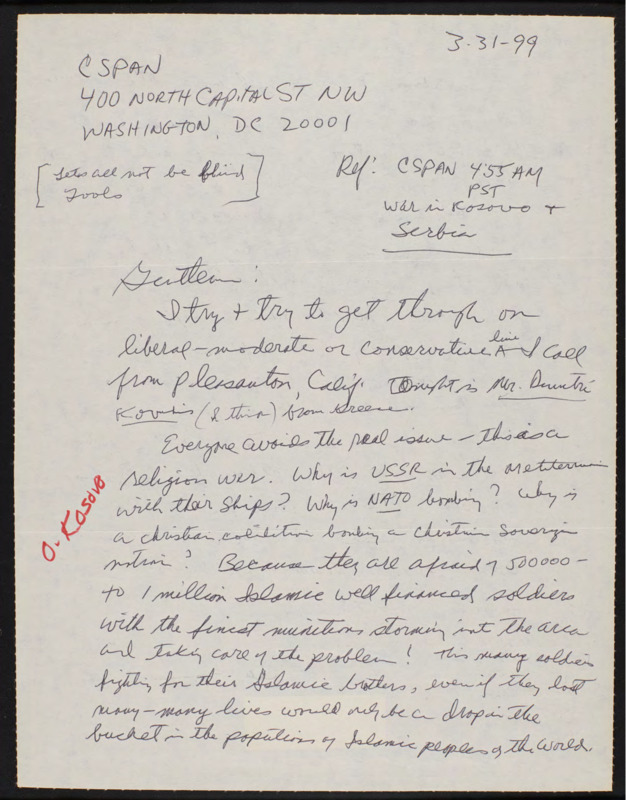 3-31-99
CSPAN
400 NORTH CAPITAL ST NW
WASHINGTON, DC 20001
[Lets all not be blind
Fools]
Ref: CSPAN 4:55 AM
PST
War in Kosovo +
Serbia
Gentlemen:
I try + try to get through on
liberal-moderate or conservative line I call
from Pleasanton, Calif. Tonight is Mr. Dimitri
(I think) from Greece.
Everyone avoids the real issue - this is a
religion war. Why is USSR in the
with their ships? Why is NATO bombing? Why is
a christian coalition bombing a Christian Soverign
nation? Because they are afraid of 500000-
to 1 million Islamic well financed soldiers
with the finest munitions storming into the area
and taking care of the problem! This many soldiers
fighting for their Islamic brothers, even if they lost
many-many lives would only be a drop in the
bucket in the populations of Islamic peoples of the world.
O-Kosovo